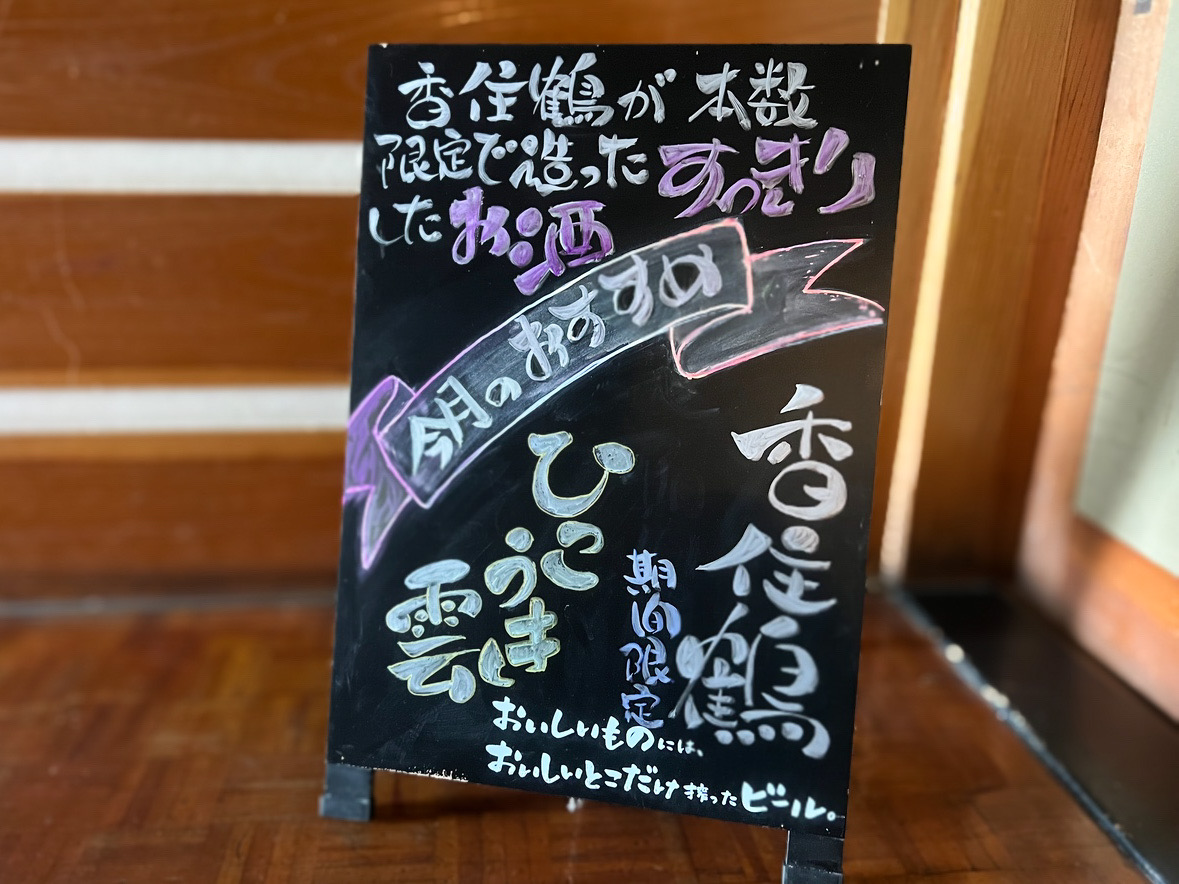 香住鶴が本数
限定で造ったすっきり
したお酒
今月のおすすめ
香住鶴
期间限定
ひこうき雲
おいしいものには、
おいしいとこだけ搾ったビール。